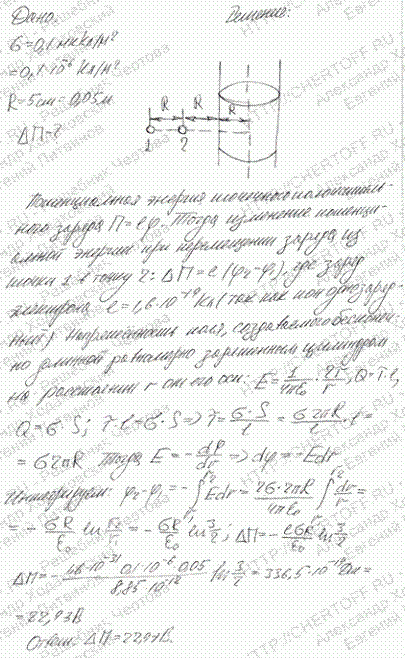 Дано:
Решение:
σ = 0,1 мкКл/м²
= 0,1·10⁻⁶ Кл/м²
R = 5 см = 0,05 м
ΔП = ?
R R R
1 2
Потенциальная энергия точечного положитель-
ного заряда П = eφ. Тогда изменение потенци-
альной энергии при перемещении заряда из
точки 1 в точку 2: ΔП = e(φ₂-φ₁), где заряд
e = 1,6·10⁻¹⁹ Кл (так как ион однозаряд-
ный). Напряженность поля, создаваемого бесконеч-
но длинной равномерно заряженным цилиндром
на расстоянии r от его оси: E = 1/4πε₀ · 2τ/r, Q = τ·l,
Q = σ·S; τ·l = σ·S => τ = σ·S/l = σ2πR/l · l =
= σ2πR Тогда E = -dφ/dr => dφ = -Edr
Интегрируем: φ₂-φ₁ = -∫Edr = 2σ·2πR/4πε₀ ∫dr/r =
= -σR/ε₀ ln r₂/r₁ = -σR/ε₀ ln 3/2; ΔП = -eσR/ε₀ ln 3/2
ΔП = - 0,1·10⁻⁶·0,05/8,85·10⁻¹² ln 3/2 = 336,5·10⁻¹⁹ Дж =
Ответ: ΔП =
HTTP://CHERTOFF.RU